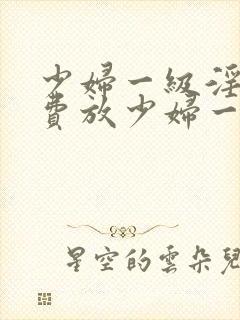 少婦一級淫
費放少婦一
星空的雲朵兒